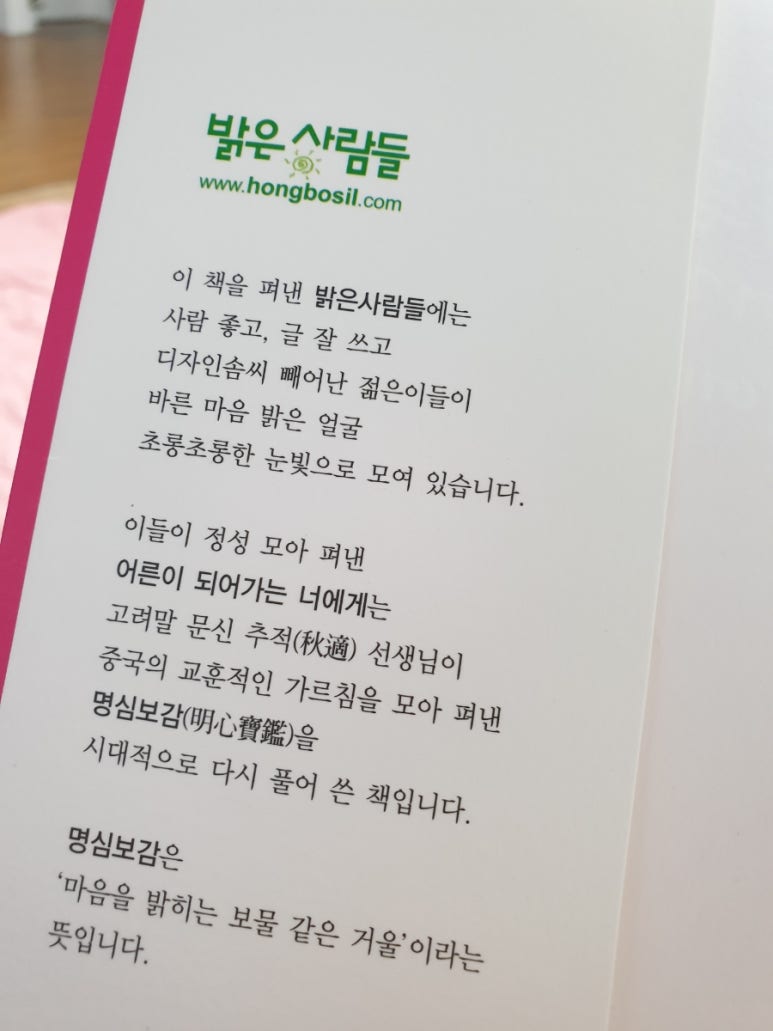 밝은 사람들
www.hongbosil.com
이 책을 펴낸 밝은사람들에는
사람 좋고, 글 잘 쓰고
디자인솜씨 빼어난 젊은이들이
바른 마음 밝은 얼굴
초롱초롱한 눈빛으로 모여 있습니다.
이들이 정성 모아 펴낸
어른이 되어가는 너에게는
고려말 문신 추적(秋適) 선생님이
중국의 교훈적인 가르침을 모아 펴낸
명심보감(明心寶鑑)을
시대적으로 다시 풀어 쓴 책입니다.
명심보감은
‘마음을 밝히는 보물 같은 거울’이라는
뜻입니다.